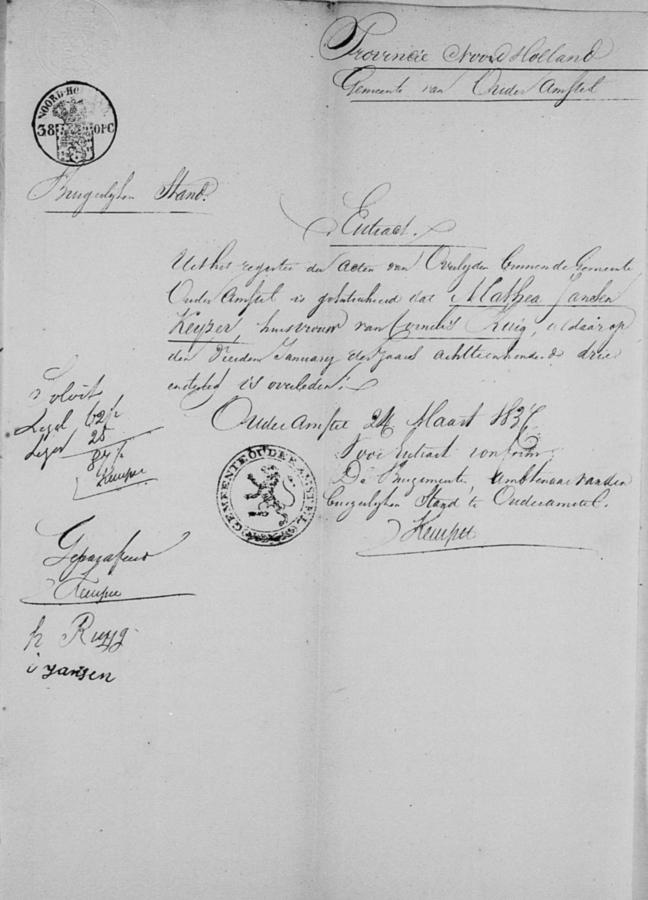 Provincie Noord Holland
Gemeente van Ouder Amstel
NOORD-HO
38 OPC
Burgerlyken Stand.
Extract.
Uit het register der acten van Overlyden binnen de Gemeente
Ouder Amstel is geextraheerd dat Mathea Jansen
Keyser, huisvrouw van Cornelis Ruig, aldaar op
den January des jaars achttienhonderd drie
en is overleden.
Ouder Amstel 24 Maart 1837
Voor Extract conform
De Burgemeester Ambtenaar van den
burgerlyken Stand te Ouderamstel.
Kemper
GEMEENTE OUDER AMSTEL
Solvit
Legal 62½
Zegel 25
87½
Kemper
Geparafeerd
Kemper
p Ruyg
i Jansen